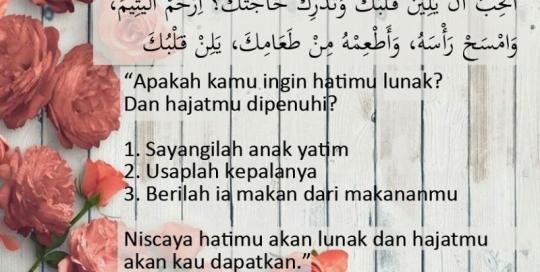 أَتُحِبُّ أَنْ يَلِينَ قَلْبُكَ وَتُدْرِكَ حَاجَتَكَ؟ اِرْحَمِ الْيَتِيمَ،
وَامْسَحْ رَأْسَهُ، وَأَطْعِمْهُ مِنْ طَعَامِكَ، يَلِنْ قَلْبُكَ
“Apakah kamu ingin hatimu lunak?
Dan hajatmu dipenuhi?
1. Sayangilah anak yatim
2. Usaplah kepalanya
3. Berilah ia makan dari makananmu
Niscaya hatimu akan lunak dan hajatmu
akan kau dapatkan.”